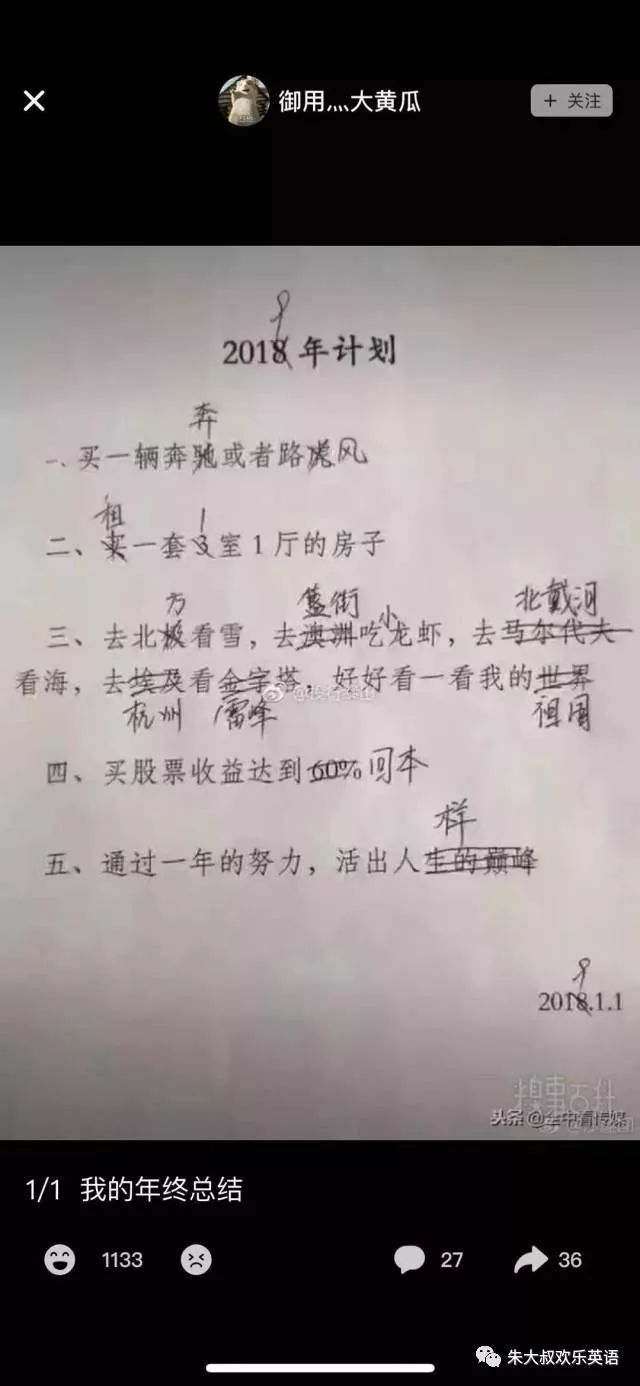 御用灬大黄瓜
+ 关注
9
2018年计划
奔
一、买一辆奔驰或者路虎风
租 1
二、买一套3室1厅的房子
方 簋街 小 北戴河
三、去北极看雪，去澳洲吃龙虾，去马尔代夫
看海，去埃及看金字塔，好好看一看我的世界
杭州 雷峰 祖国
四、买股票收益达到60%回本
样
五、通过一年的努力，活出人生的巅峰
9
2018.1.1
糗事百科
头条
1/1 我的年终总结
1133
27
36
朱大叔欢乐英语